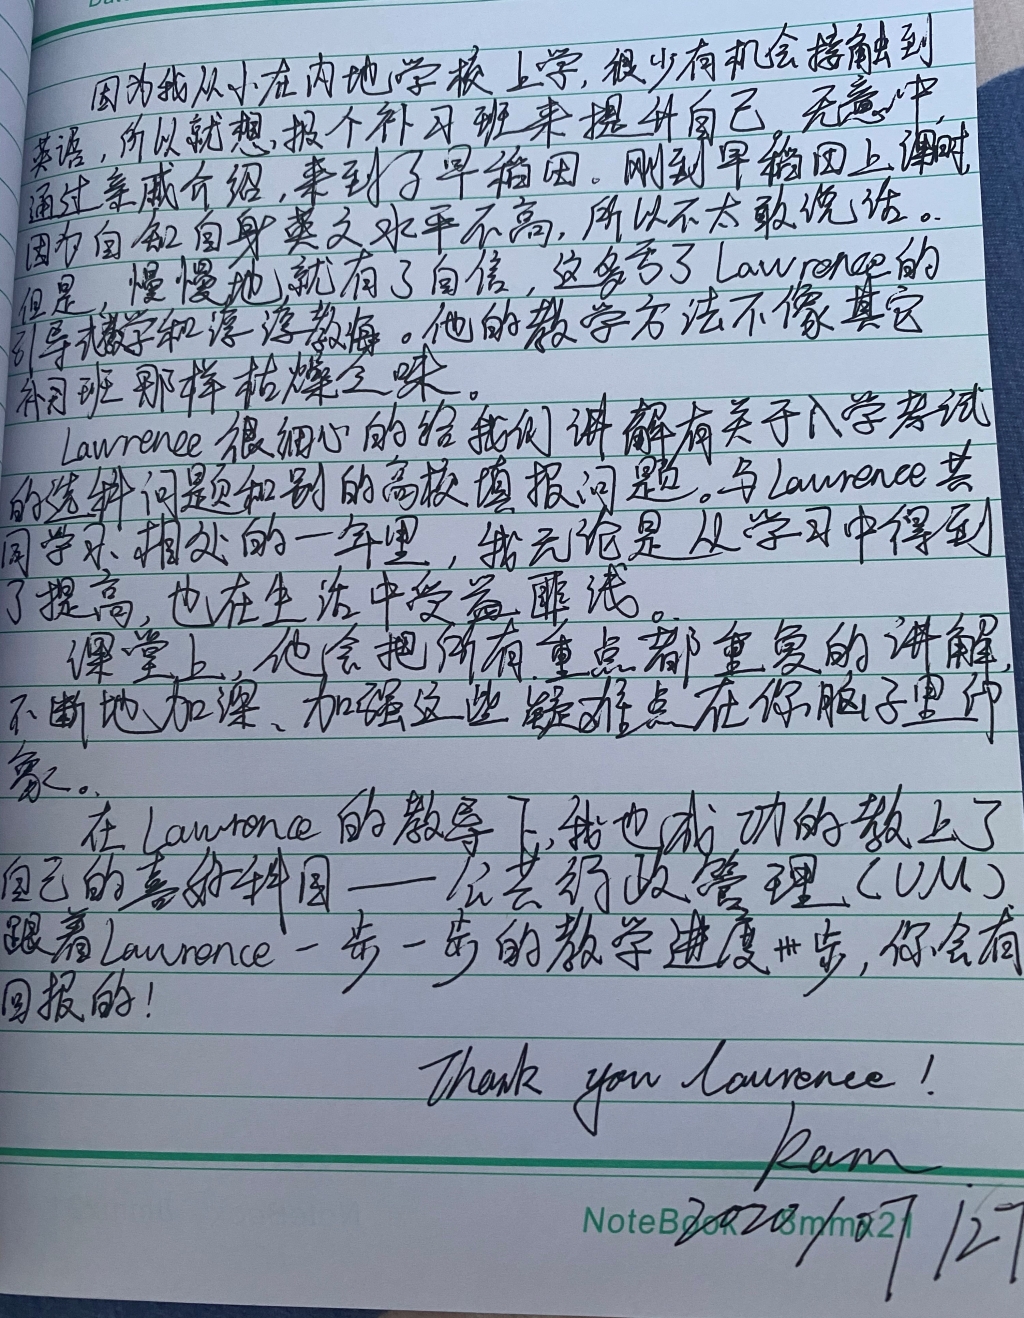 因为我从小在内地学校上学，很少有机会接触到
英语，所以就想报个补习班来提升自己。无意中，
通过亲戚介绍，来到了早稻田。刚到早稻田上课时，
因为自知自身英文水平不高，所以不太敢说话。
但是，慢慢地就有了自信，这多亏了Lawrence的
引导式教学和谆谆教悔。他的教学方法不像其它
补习班那样枯燥乏味。
Lawrence很细心的给我们讲解有关于入学考试
的选科问题和别的高校填报问题。与Lawrence共
同学习、相处的一年里，我无论是从学习中得到
了提高，也在生活中受益匪浅。
课堂上，他会把所有重点都重复的讲解，
不断地加深、加强这些疑难点在你脑子里印
象。
在Lawrence的教导下，我也成功的教上了
自己的喜好科目——公共行政管理（UM）
跟着Lawrence一步一步的教学进度步，你会有
回报的！
Thank you Lawrence!
2020/07/27
NoteBook 8mmx21